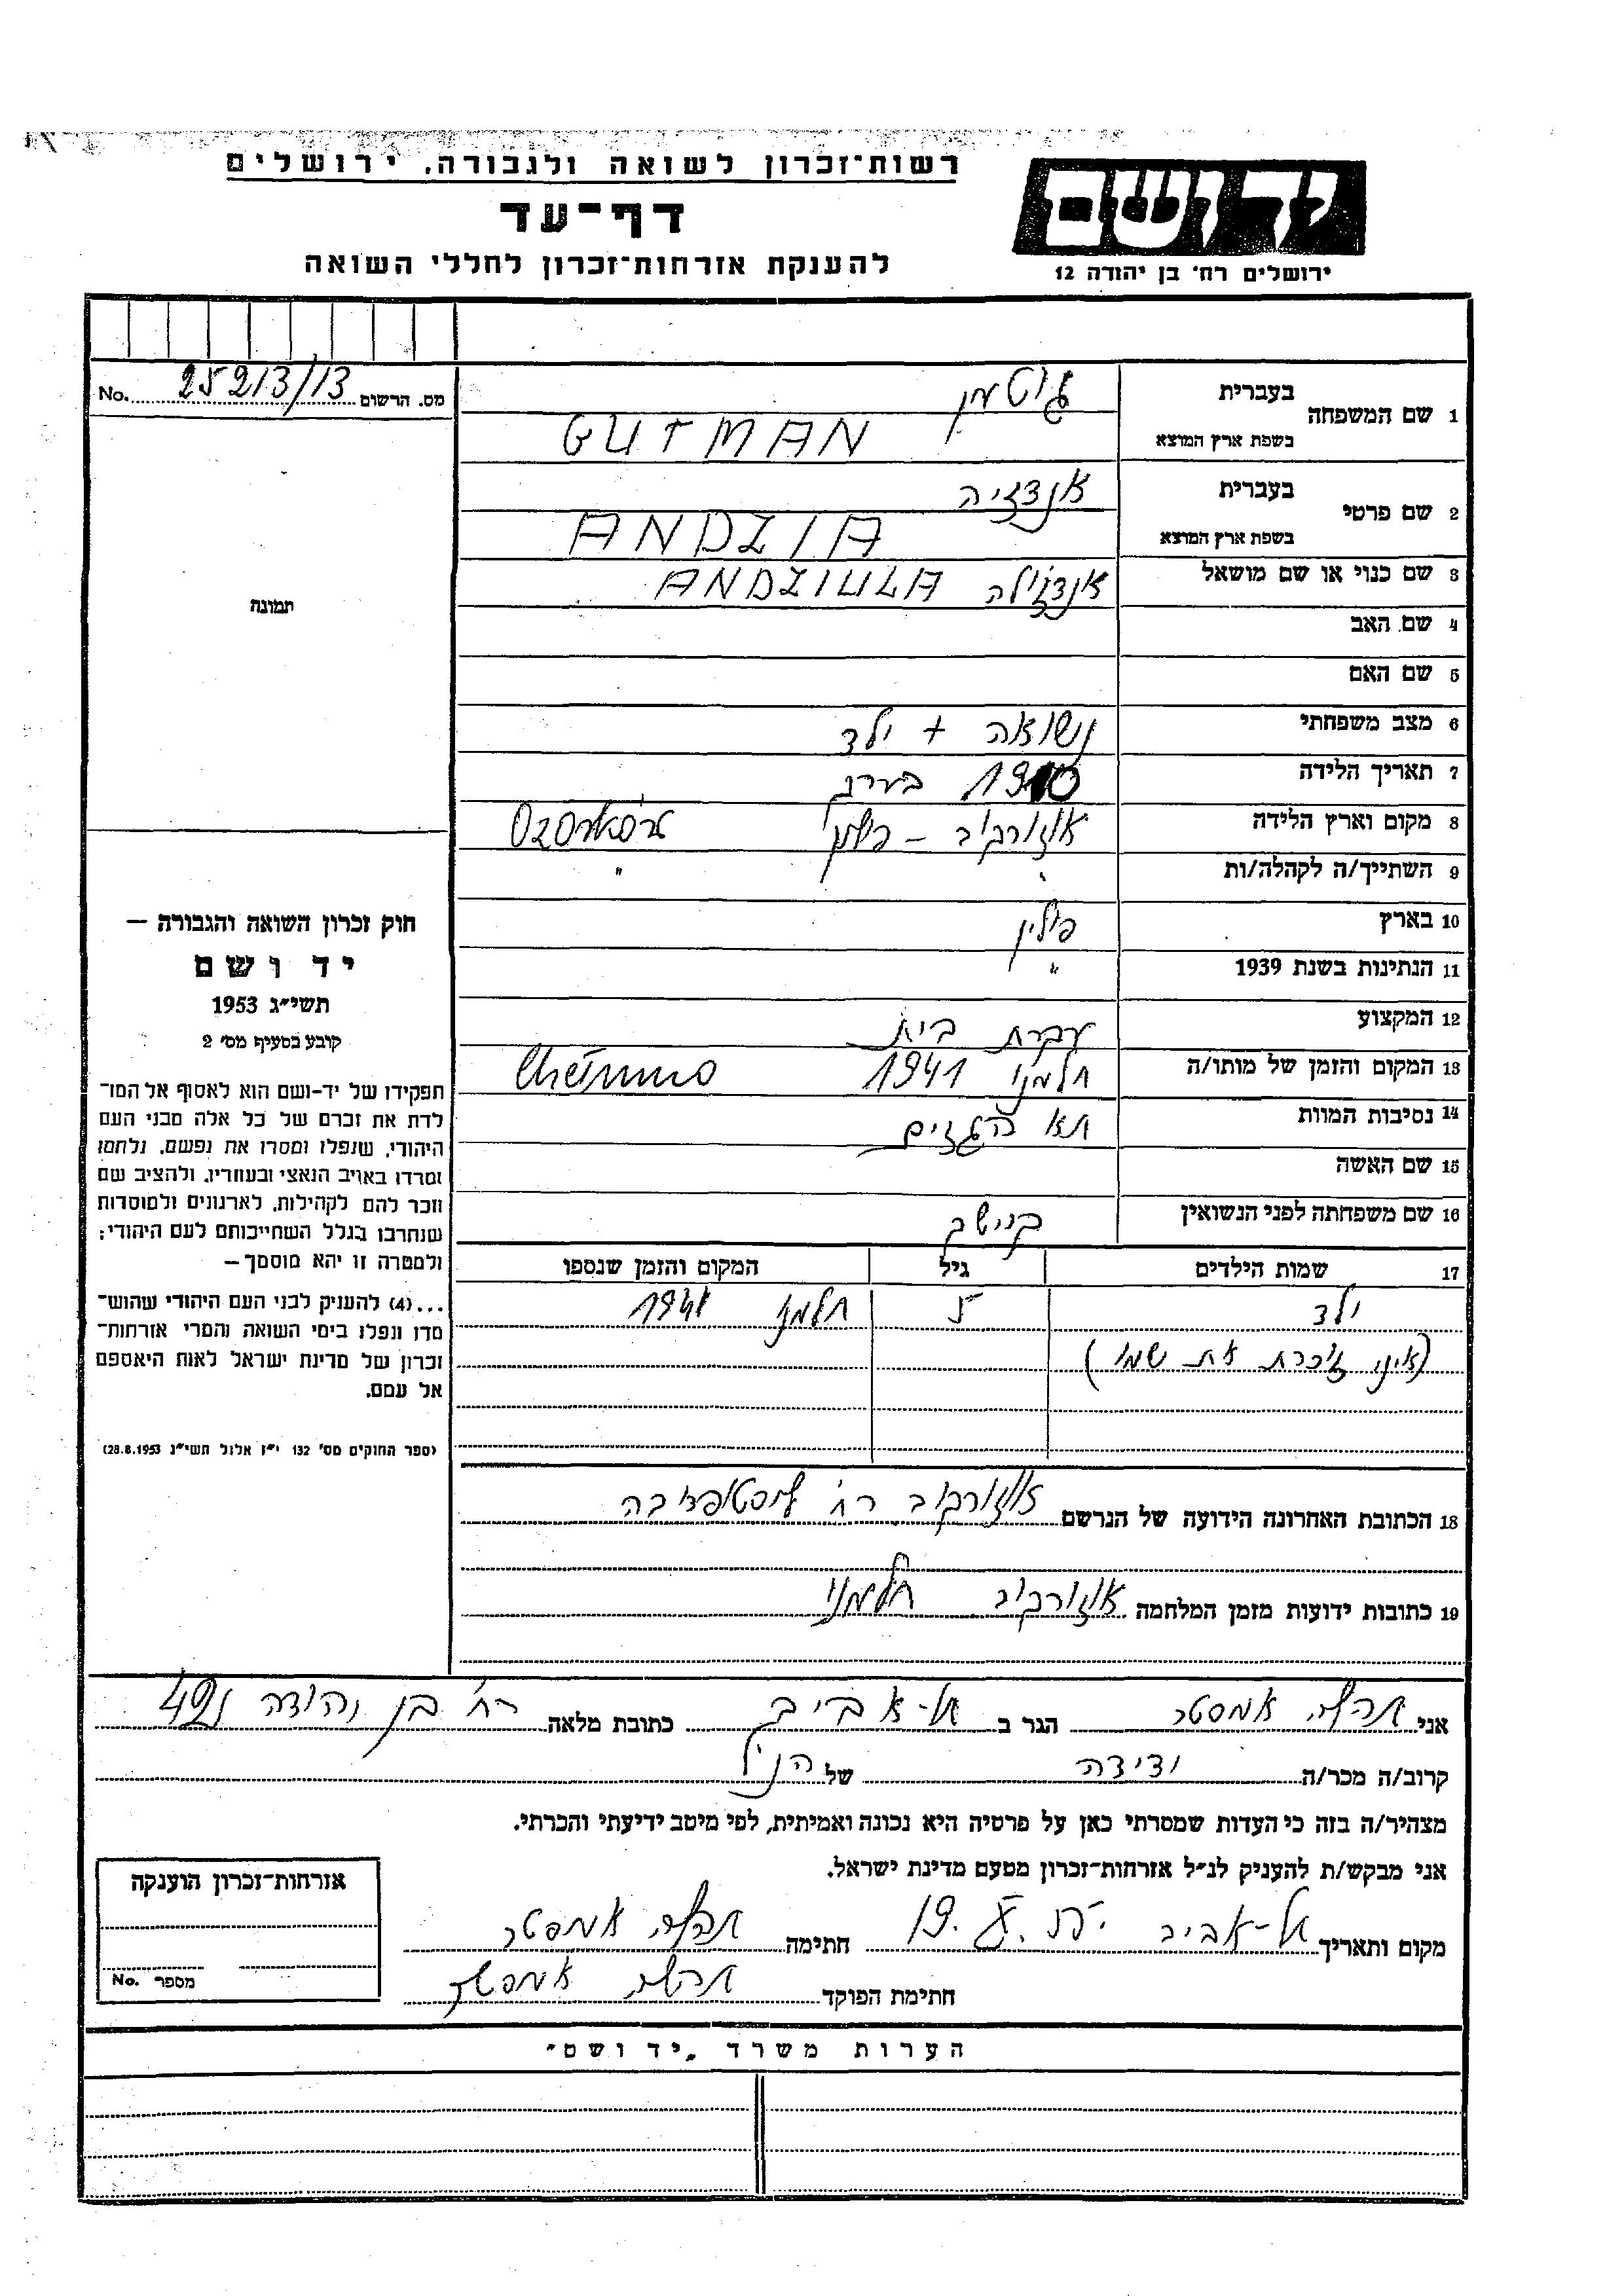 רשות־זכרון לשואה ולגבורה, ירושלים
דף־עד
להענקת אזרחות־זכרון לחללי השואה
יד ושם
ירושלים רח' בן יהודה 12
מס. הרשום 25213/13 No.
1 שם המשפחה
בעברית גוטמן
בשפת ארץ המוצא GUTMAN
2 שם פרטי
בעברית אנדזיה
בשפת ארץ המוצא ANDZIA
3 שם כנוי או שם מושאל אנדזולה ANDZIULA
4 שם האב
5 שם האם
6 מצב משפחתי נשואה + ילד
7 תאריך הלידה 1910 בערך
8 מקום וארץ הלידה אוזורקוב –
9 השתייך/ה לקהלה/ות " "
10 בארץ פולין
11 הנתינות בשנת 1939 "
12 המקצוע עקרת בית
13 המקום והזמן של מותו/ה חלמנו 1941
14 נסיבות המוות תא הגזים
15 שם האשה
16 שם משפחתה לפני הנשואין
17 שמות הילדים גיל המקום והזמן שנספו
ילד 5 חלמנו 1941
(איני זוכרת את שמו)
18 הכתובת האחרונה הידועה של הנרשם אוזורקוב רח'
19 כתובות ידועות מזמן המלחמה אוזורקוב חלמנו
תמונה
חוק זכרון השואה והגבורה –
יד ושם
תשי״ג 1953
קובע בסעיף מס' 2
תפקידו של יד-ושם הוא לאסוף אל המו־
לדת את זכרם של כל אלה מבני העם
היהודי, שנפלו ומסרו את נפשם, נלחמו
ומרדו באויב הנאצי ובעוזריו, ולהציב שם
וזכר להם לקהילות, לארגונים ולמוסדות
שנחרבו בגלל השתייכותם לעם היהודי;
ולמטרה זו יהא מוסמך –
...(4) להעניק לבני העם היהודי שהוש־
מדו ונפלו בימי השואה והמרי אזרחות־
זכרון של מדינת ישראל לאות היאספם
אל עמם.
(ספר החוקים מס' 132 י״ז אלול תשי״ג 28.8.1953)
אני אמסטר הגר ב תל-אביב כתובת מלאה רח' בן יהודה
קרוב/ה מכר/ה ידידה של הנ״ל
מצהיר/ה בזה כי העדות שמסרתי כאן על פרטיה היא נכונה ואמיתית, לפי מיטב ידיעתי והכרתי.
אני מבקש/ת להעניק לנ״ל אזרחות-זכרון מטעם מדינת ישראל.
מקום ותאריך תל-אביב חתימה אמסטר
חתימת הפוקד אמסטר
אזרחות-זכרון הוענקה
מספר No.
הערות משרד „יד ושם״